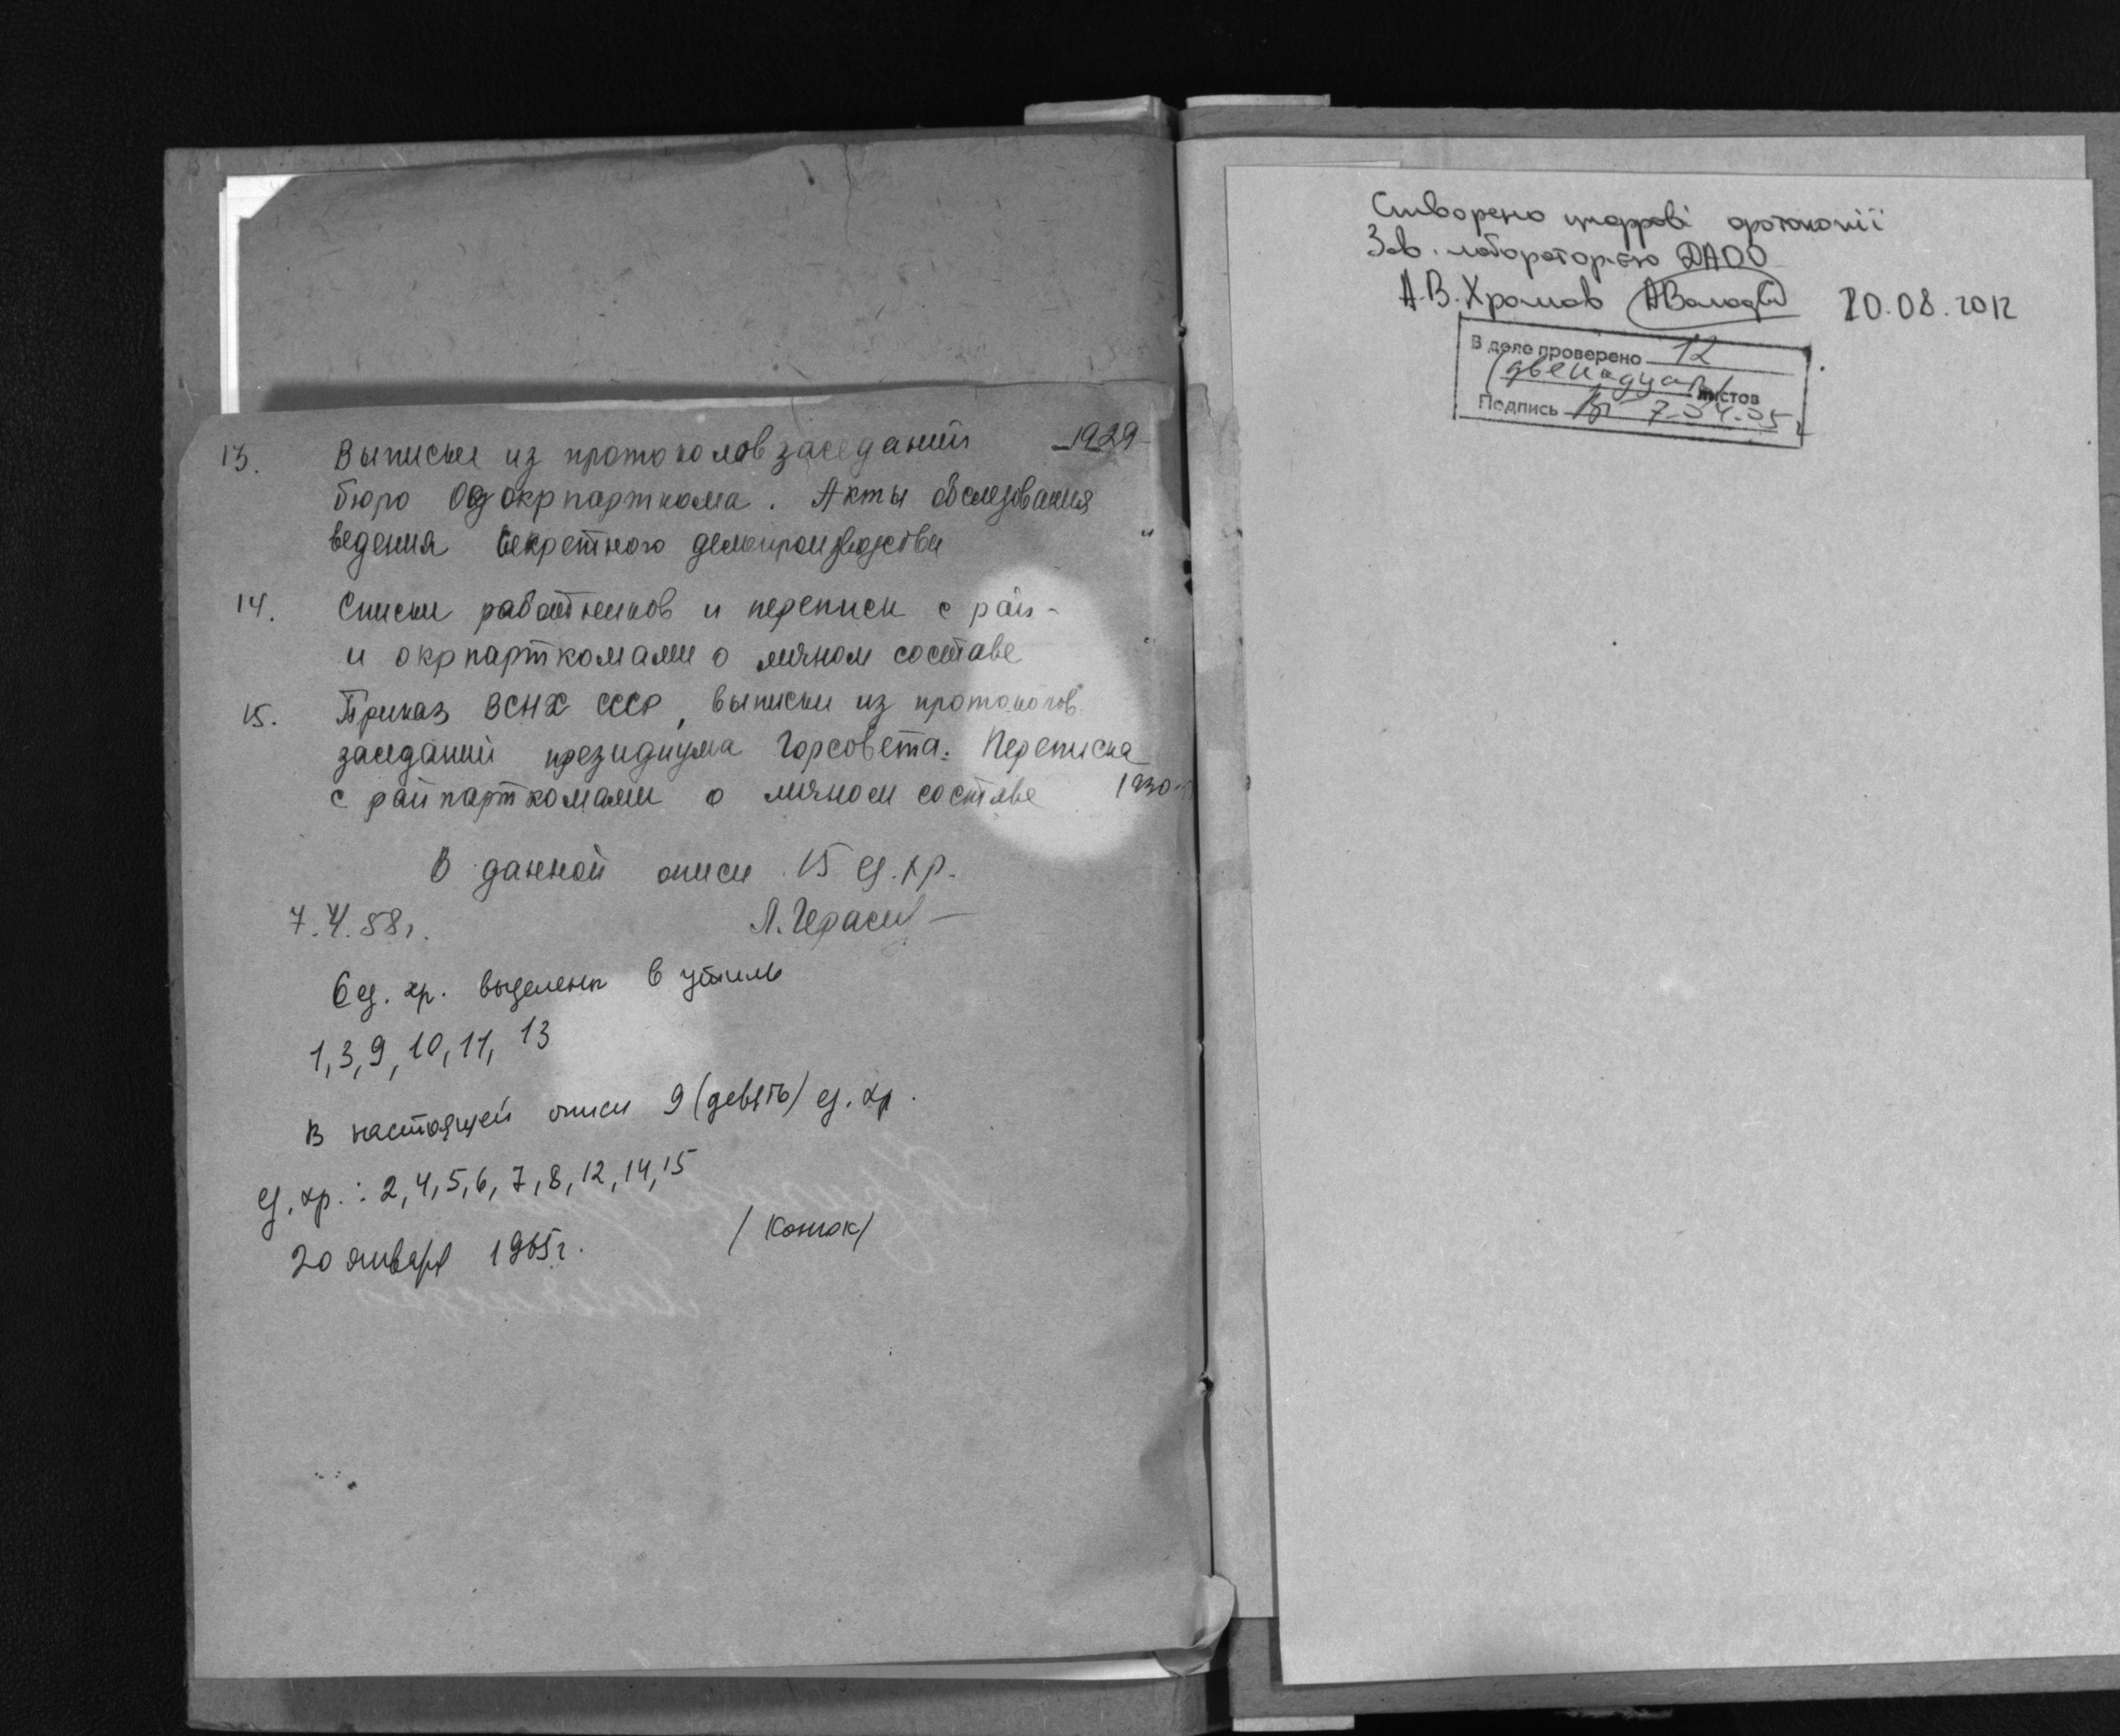 13. Выписки из протоколов заседаний 1929
бюро Одокрпарткома. Акты обследования
ведения секретного делопроизводства "
14. Списки работников и переписи с рай-
и окрпарткомами о личном составе "
15. Приказ ВСНХ СССР, выписки из протоколов
заседаний президиума Горсовета. Переписка
с райпарткомами о личном составе 1930
В данной описи 15 ед. хр.
7.4.58г. Л. Герасим
6 ед. хр. выделены в утиль
1, 3, 9, 10, 11, 13
В настоящей описи 9 (девять) ед. хр.
ед. хр.: 2, 4, 5, 6, 7, 8, 12, 14, 15
20 января 1965г. /Конюк/
Створено цифрові фотокопії
Зав. лабораторією ДАОО
А.В. Хромов 20.08.2012
В деле проверено 12
(двенадцать) листов
Подпись 7.04.05